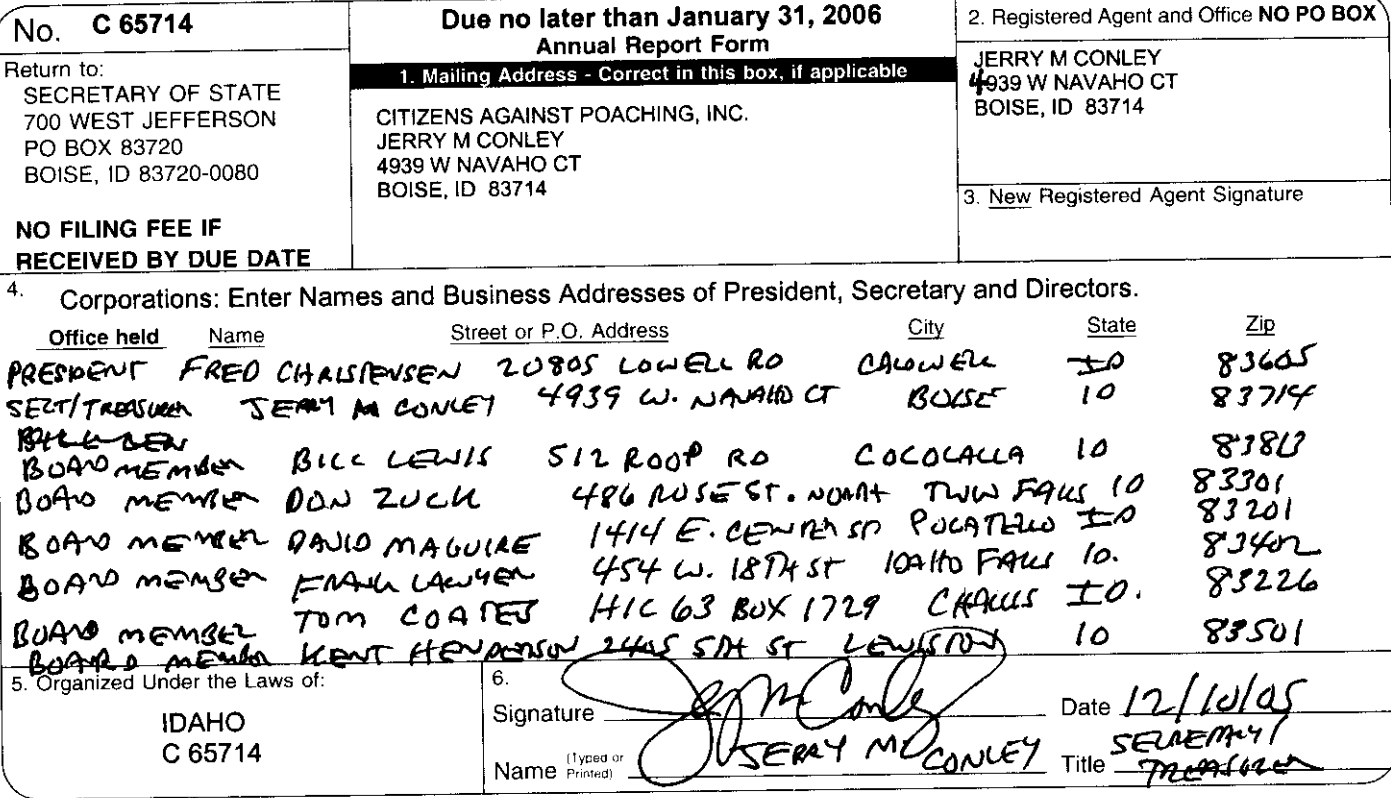 No. C 65714
Return to:
SECRETARY OF STATE
700 WEST JEFFERSON
PO BOX 83720
BOISE, ID 83720-0080
NO FILING FEE IF
RECEIVED BY DUE DATE
Due no later than January 31, 2006
Annual Report Form
1. Mailing Address - Correct in this box, if applicable
CITIZENS AGAINST POACHING, INC.
JERRY M CONLEY
4939 W NAVAHO CT
BOISE, ID 83714
2. Registered Agent and Office NO PO BOX
JERRY M CONLEY
4939 W NAVAHO CT
BOISE, ID 83714
3. New Registered Agent Signature
4. Corporations: Enter Names and Business Addresses of President, Secretary and Directors.
Office held Name Street or P.O. Address City State Zip
PRESIDENT FRED CHRISTENSEN 20805 LOWELL RD CALDWELL ID 83605
SECT/TREASURER JERRY M CONLEY 4939 W. NAVAHO CT BOISE ID 83714
BOARD MEMBER BILL LEWIS 512 ROOP RD COCOLALLA ID 83813
BOARD MEMBER DON ZUCK 486 ROSE ST. NORTH TWIN FALLS ID 83301
BOARD MEMBER DAVID MAGUIRE 1414 E. CENTER ST POCATELLO ID 83201
BOARD MEMBER FRANK LAWYER 454 W. 18TH ST IDAHO FALLS ID. 83402
BOARD MEMBER TOM COATES HC 63 BOX 1729 CHALLIS ID. 83226
BOARD MEMBER KENT HENDERSON 2405 5TH ST LEWISTON ID 83501
5. Organized Under the Laws of:
IDAHO
C 65714
6.
Signature Jerry M Conley Date 12/10/05
Name (Typed or Printed) JERRY M CONLEY Title SECRETARY/
TREASURER